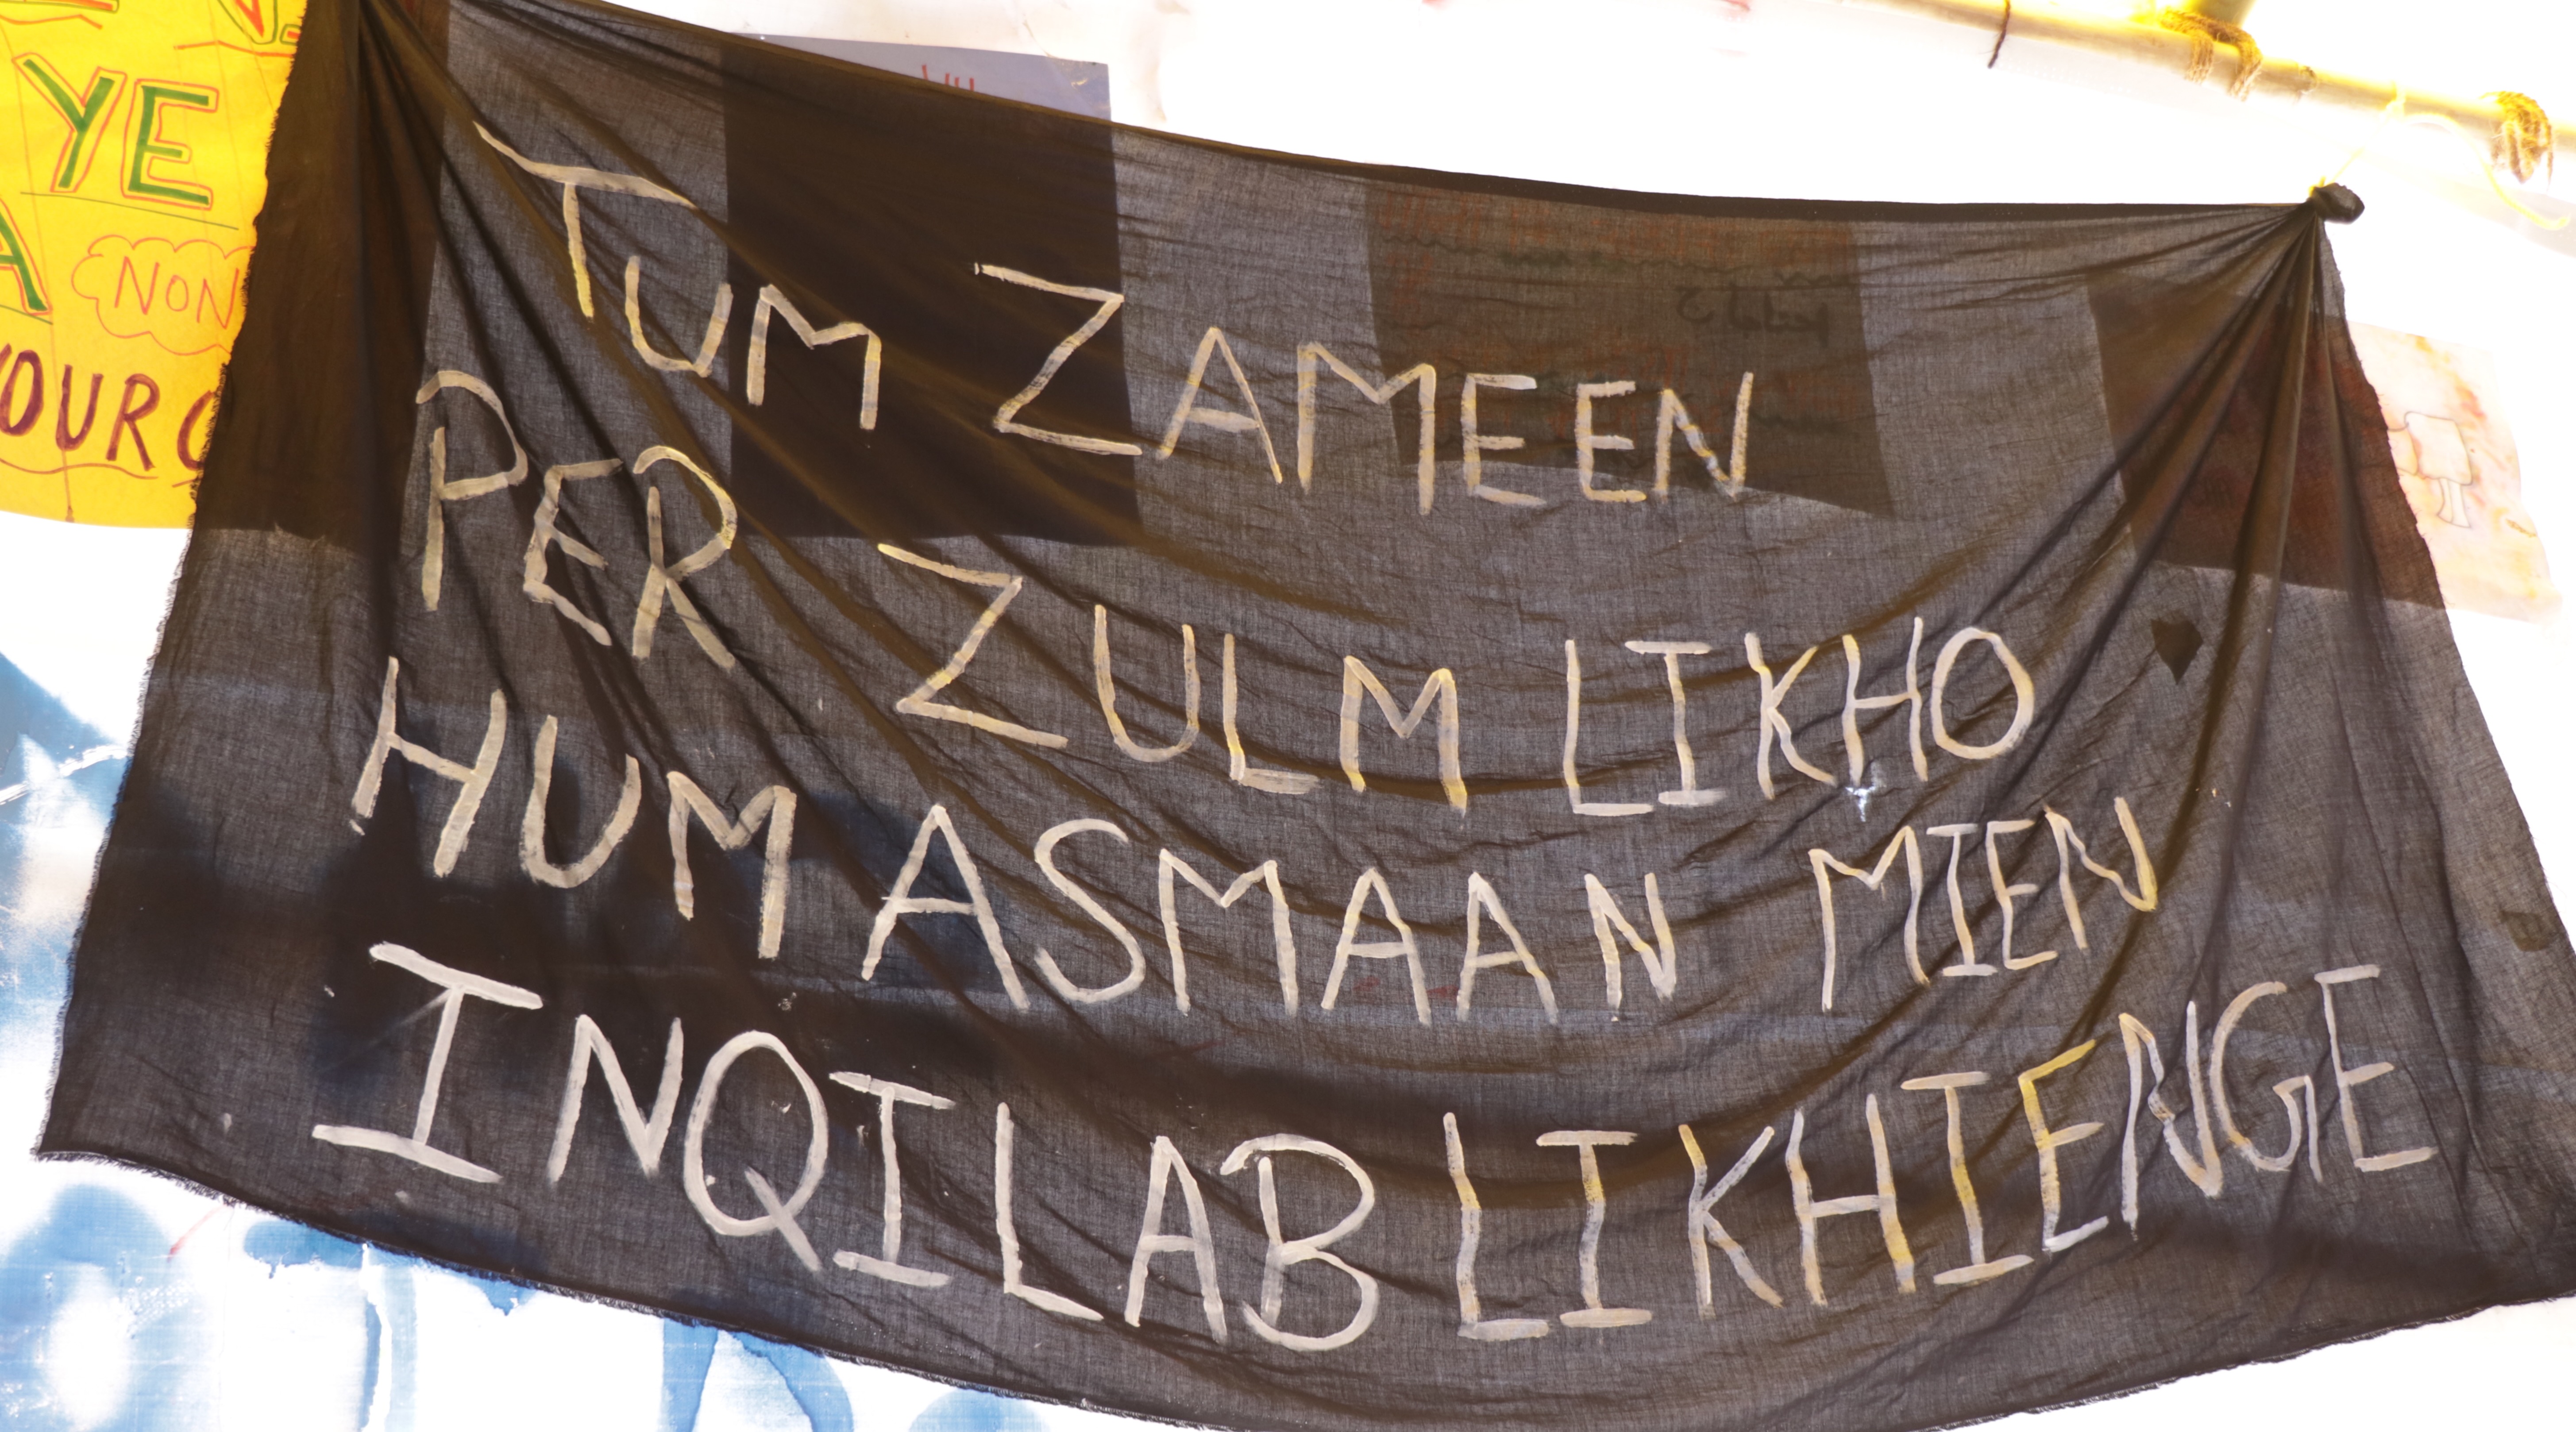 YE
NON
TUM ZAMEEN
PER ZULM LIKHO
HUM ASMAAN MIEN
INQILAB LIKHIENGE